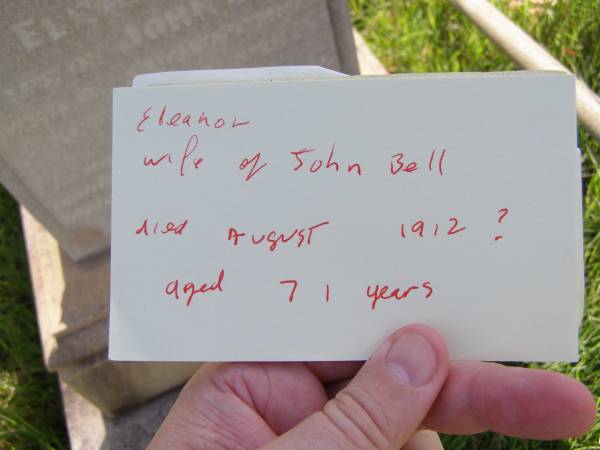 ELIS
JOHN
Eleanor
wife of John Bell
died AUGUST 1912 ?
aged 71 years